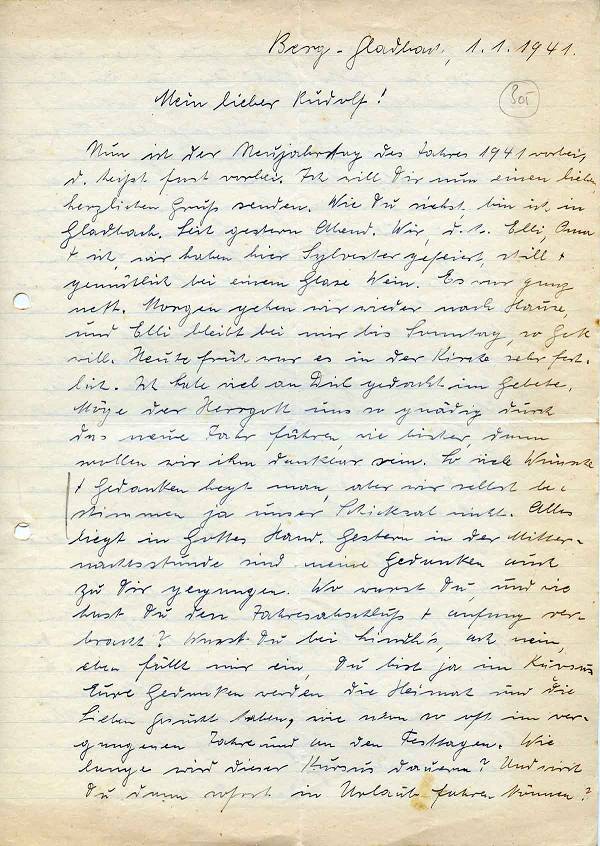 Berg-Gladbach, 1.1.1941.
Mein lieber Rudolf!
305
Nun ist der Neujahrstag des Jahres 1941 vorbei,
d. heißt fast vorbei. Ich will Dir nun einen lieben,
herzlichen Gruß senden. Wie Du siehst, bin ich in
Gladbach. Seit gestern Abend. Wir, d. h. Elli, Oma
+ ich, wir haben hier Sylvester gefeiert, still +
gemütlich bei einem Glase Wein. Es war ganz
nett. Morgen gehen wir wieder nach Hause,
und Elli bleibt bei mir bis Sonntag, so Gott
will. Heute früh war es in der Kirche sehr fest-
lich. Ich habe viel an Dich gedacht im Gebete.
Möge der Herrgott uns so gnädig durch
das neue Jahr führen, wie bisher, dann
wollen wir ihm dankbar sein. So viele Wünsche
+ Gedanken hegt man, aber wir selbst be-
stimmen ja unser Schicksal nicht. Alles
liegt in Gottes Hand. Gestern in der Mitter-
nachtsstunde sind meine Gedanken auch
zu Dir gegangen. Wo warst Du, und wie
hast Du den Jahresabschluß + anfang ver-
bracht? Warst Du bei, ach nein,
eben fällt mir ein, Du bist ja im Kursus
Eure Gedanken werden die Heimat und die
Lieben gesucht haben, wie schon so oft im ver-
gangenen Jahre und an den Festtagen. Wie
lange wird dieser Kursus dauern? Und wirst
Du dann sofort in Urlaub fahren können?